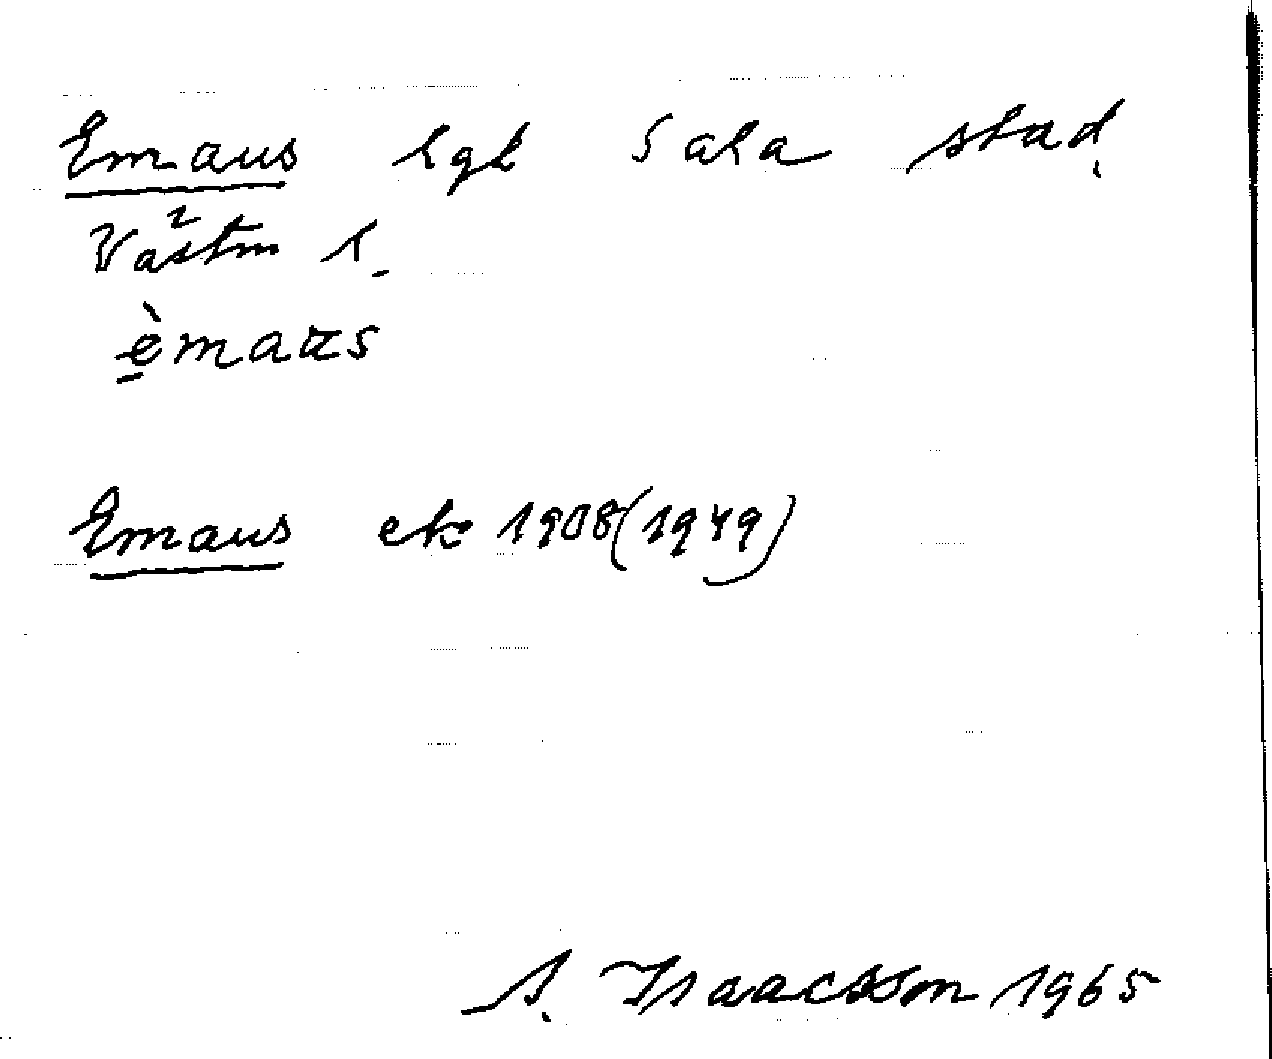 Emaus lgh Sala stad.
Västm l.
èmaus
Emaus ek 1908 (1949)
A. Isaacsson 1965